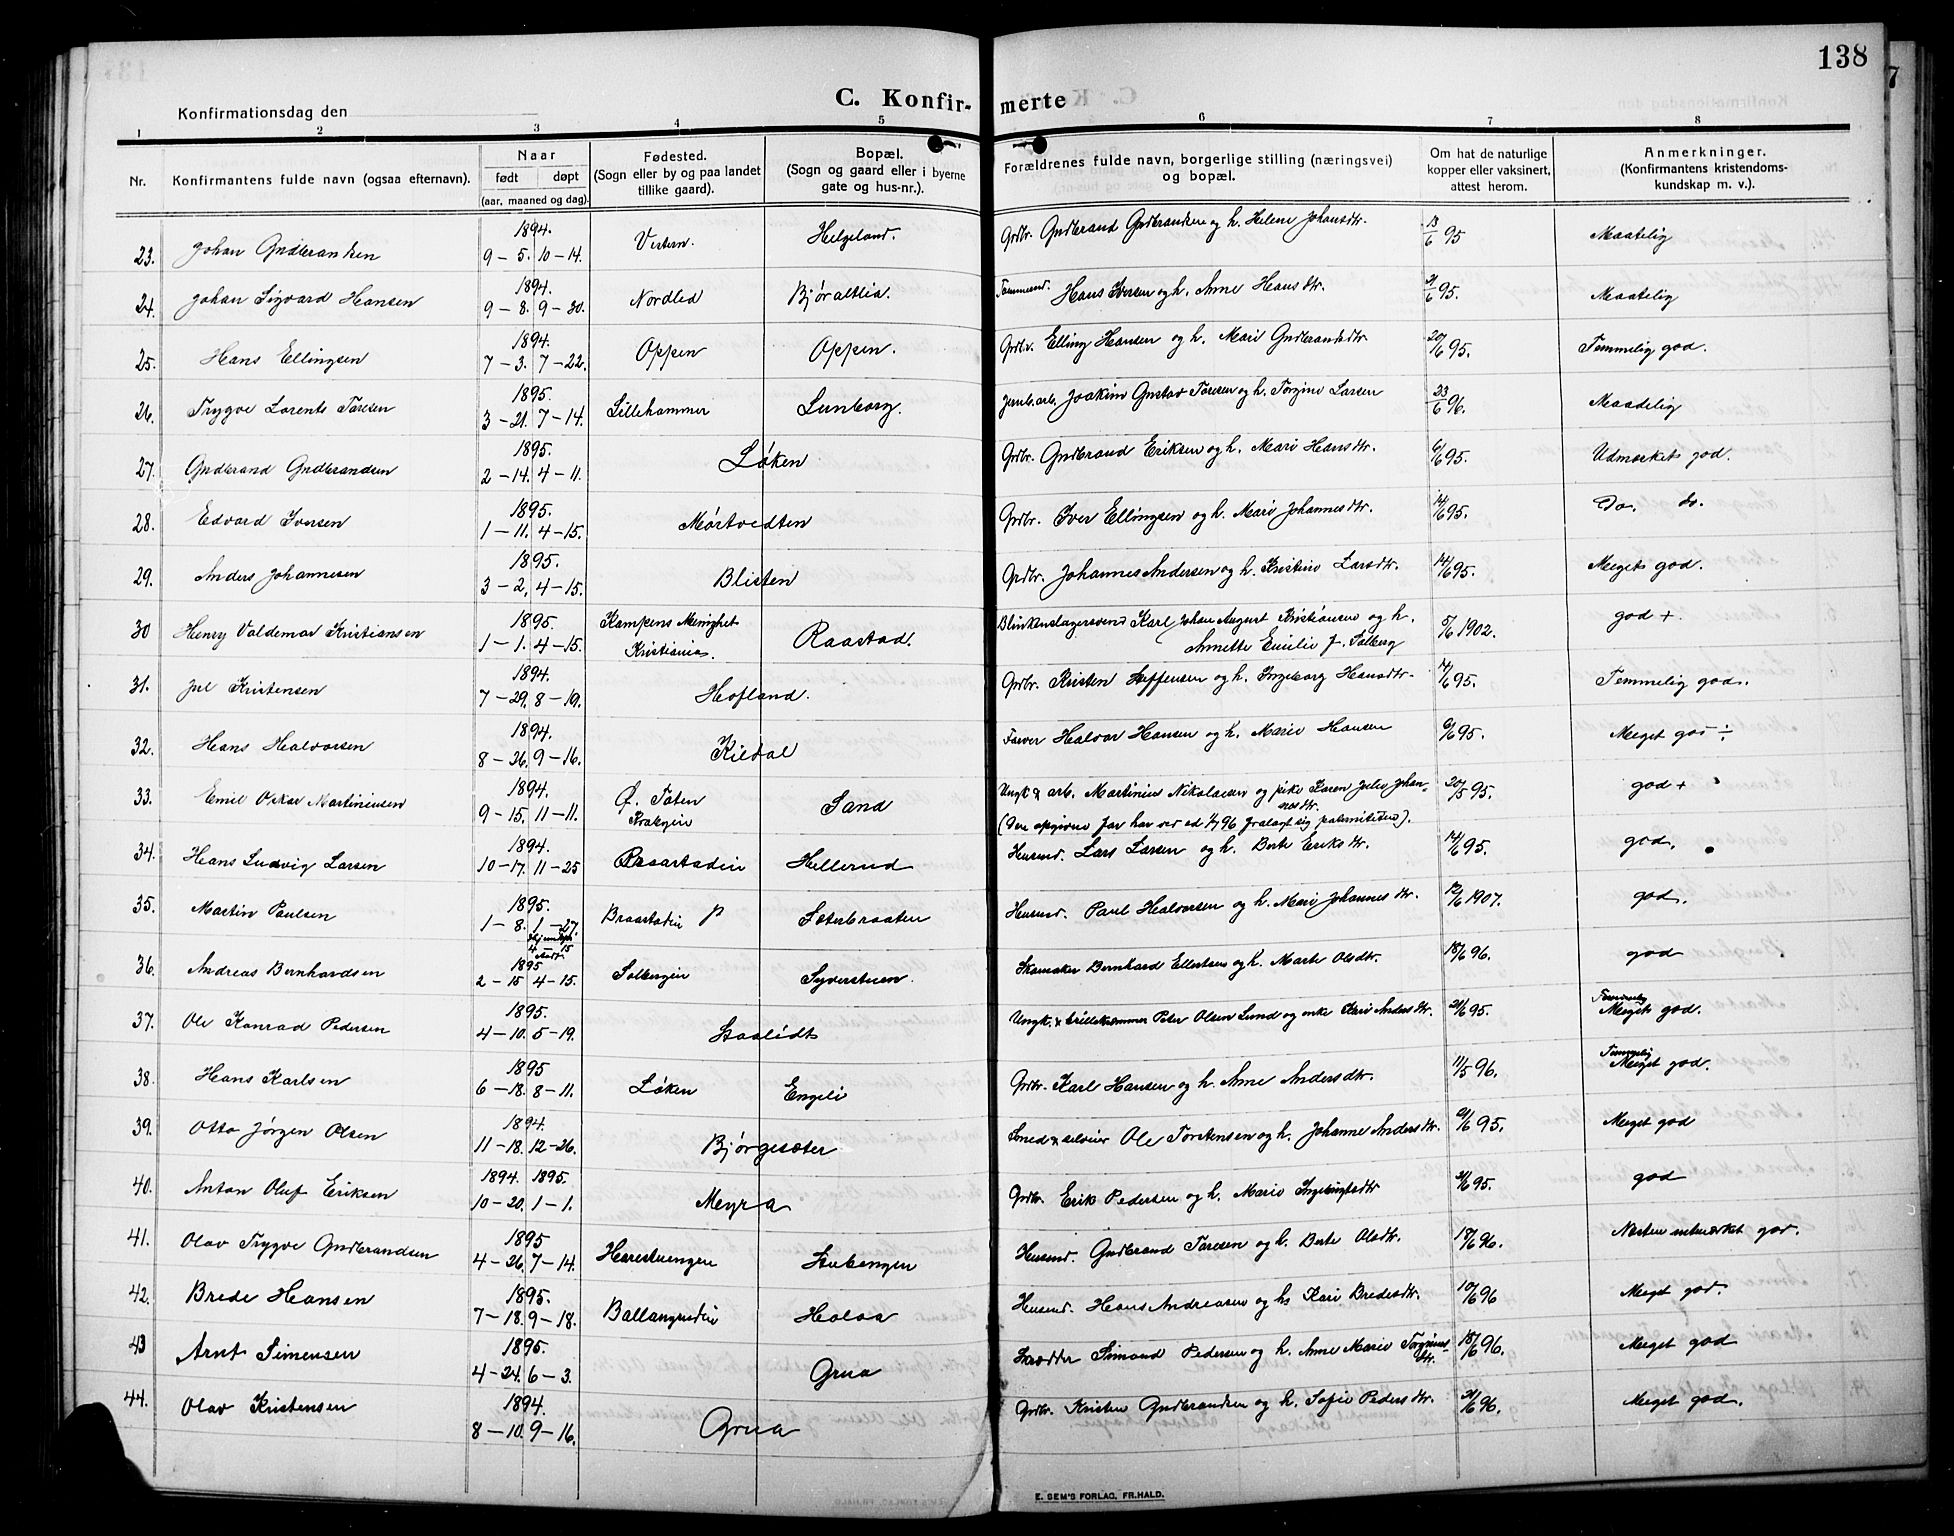 138
C. Konfir- merte
Konfirmationsdag den
1 2 3 4 5 6 7 8
Nr. Konfirmantens fulde navn (ogsaa efternavn). Naar født døpt (aar, maaned og dag). Fødested. (Sogn eller by og paa landet tillike gaard). Bopæl. (Sogn og gaard eller i byerne gate og hus-nr.). Forældrenes fulde navn, borgerlige stilling (næringsvei) og bopæl. Om hat de naturlige kopper eller vaksinert, attest herom. Anmerkninger. (Konfirmantens kristendoms-kundskap m. v.).
23. Johan Gudbrandsen 1894. 9-5. 10-14. Vestern. Helgeland. Grdbr. Gudbrand Gudbrandsen og h. Helene Johansdtr. 13/6 95 Maatelig
24. Johan Sigvard Hansen 1894. 9-8. 9-30. Nordlid Bjøraltlia. Tømmermd. Hans Iversen og h. Anne Hansdtr. 21/6 95. Maatelig
25. Hans Ellingsen 1894. 7-3. 7-22. Oppen Oppen. Grdbr. Elling Hansen og h. Mari Gudbrandsdtr 20/6 95. Temmelig god.
26. Trygve Lorents Toresen 1895. 3-21. 7-14. Lillehammer Lunborg. Jernb.arb. Joakim Gustav Toresen og h. Torgine Larsen 23/6 96. Maadelig
27. Gudbrand Gudbrandsen 1895. 2-14. 4-11. Løken Grdbr. Gudbrand Eriksen og h. Mari Hansdtr. 6/6 95. Udmerket god.
28. Edvard Iversen 1895. 1-11. 4-15. Mørtvedten Grdbr. Iver Ellingsen og h. Mari Johannesdtr. 14/6 95. Do. do.
29. Anders Johannesen 1895. 3-2. 4-15. Blisten Grdbr. Johannes Andersen og h. Kristine Larsdtr. 14/6 95. Meget god.
30 Henry Valdemar Kristiansen 1895. 1-1. 4-15. Kampens Menighet Kristiania. Raastad. Blikkenslagersvend Karl Johan August Kristiansen og h. Annette Emilie J. Solberg 5/6 1902. god +.
31. Jul Kristensen 1894. 7-29. 8-19. Hofland. Grdbr. Kristen Steffensen og h. Ingeborg Hansdtr. 14/6 95. Temmelig god.
32. Hans Halvorsen 1894. 8-26. 9-16. Kildal Farver Halvor Hansen og h. Marie Hansen 6/6 95. Meget god ÷
33. Emil Oskar Martiniusen 1894. 9-15. 11-11. Ø. Toten Krabyeie Sand Ungk & arb. Martinius Nikolaisen og pike Karen Julie Johannesdtr. 20/5 95. god +
(Den opgivne far har ved ed 1/7 96 fralagt sig paterniteten).
34. Hans Ludvig Larsen 1894. 10-17. 11-25 Braastadeie Hellerud Husmd. Lars Larsen og h. Berte Eriksdtr. 14/6 95. god.
35. Martin Paulsen 1895. 1-8. 1-27. Braastadeie Sæterbraaten Husmd. Paul Halvorsen og h. Mari Johannesdtr. 12/6 1907. god.
36. Andreas Bernhardsen 1895 2-15 4-15. Solbergeie Syverstuen. Skomaker Bernhard Ellertsen og h. Marte Olsdtr. 18/6 96. god
37. Ole Konrad Pedersen 1895. 4-10. 5-19. Staslidt Ungk. & Peter Olsen Lund og enke Kari Andersdtr. 21/6 95. Temmelig Meget god.
38. Hans Karlsen 1895 6-18. 8-11. Løken Engeli Grdbr. Karl Hansen og h. Anne Andersdtr. 11/5 96. Temmelig Meget god.
39. Otto Jørgen Olsen 1894. 11-18. 12-26. Bjørgesæter Smed & selveier Ole Torstensen og h. Johanne Andersdtr. 6/6 95. Meget god
40. Anton Oluf Eriksen 1894. 1895. 10-20. 1-1. Meyra Grdbr. Erik Pedersen og h. Marie Ingebrigtsdtr 21/6 95. god
41. Olav Trygve Gudbrandsen 1895 4-26. 7-14. Harestuengen Stubengen Husmd. Gudbrand Toresen og h. Berte Olsdtr. 18/6 96. Næsten udmerket god.
42. Brede Hansen 1895. 7-18. 9-18. Ballangrudeie Haloa Husmd. Hans Andreasen og h. Kari Bredesdtr. 10/6 96 Meget god.
43 Arnt Simensen 1895. 4-24. 6-3. Grua Skrædder Simond Pedersen og h. Anne Marie Torginusdtr. 18/6 96. Meget god
44. Olav Kristensen 1894. 8-10. 9-16. Grua Grdbr. Kristen Gudbrandsen og h. Sofie Pedersdtr. 21/6 96. Meget god.
E. SEM'S FORLAG, FR.HALD.